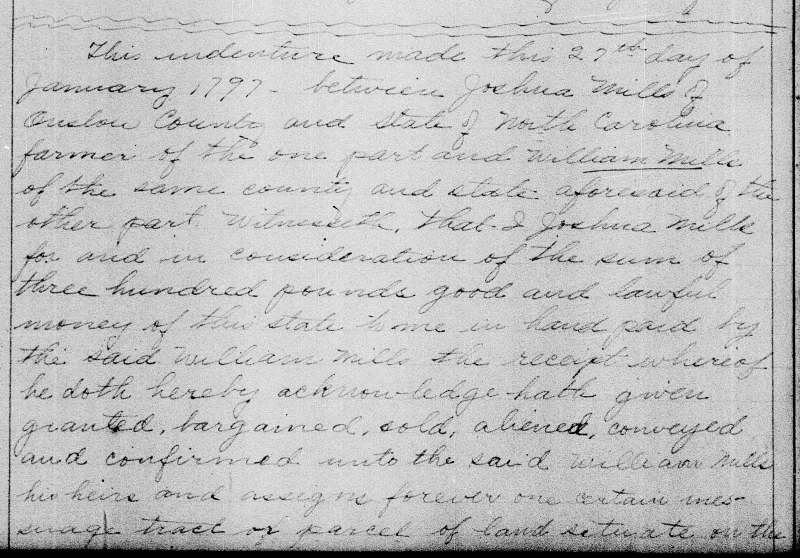 This indenture made this 27th day of
January 1797 - between Joshua Mills of
Onslow County and state of North Carolina
farmer of the one part and William Mills
of the same county and state aforesaid of the
other part. Witnesseth, that I Joshua Mills
for and in consideration of the sum of
three hundred pounds good and lawful
money of this state to me in hand paid by
the said William Mills the receipt whereof
he doth hereby acknow-ledge hath given
granted, bargained, sold, aliened, conveyed
and confirmed unto the said William Mills
his heirs and assigns forever one certain mes-
suage tract or parcel of land situate on the